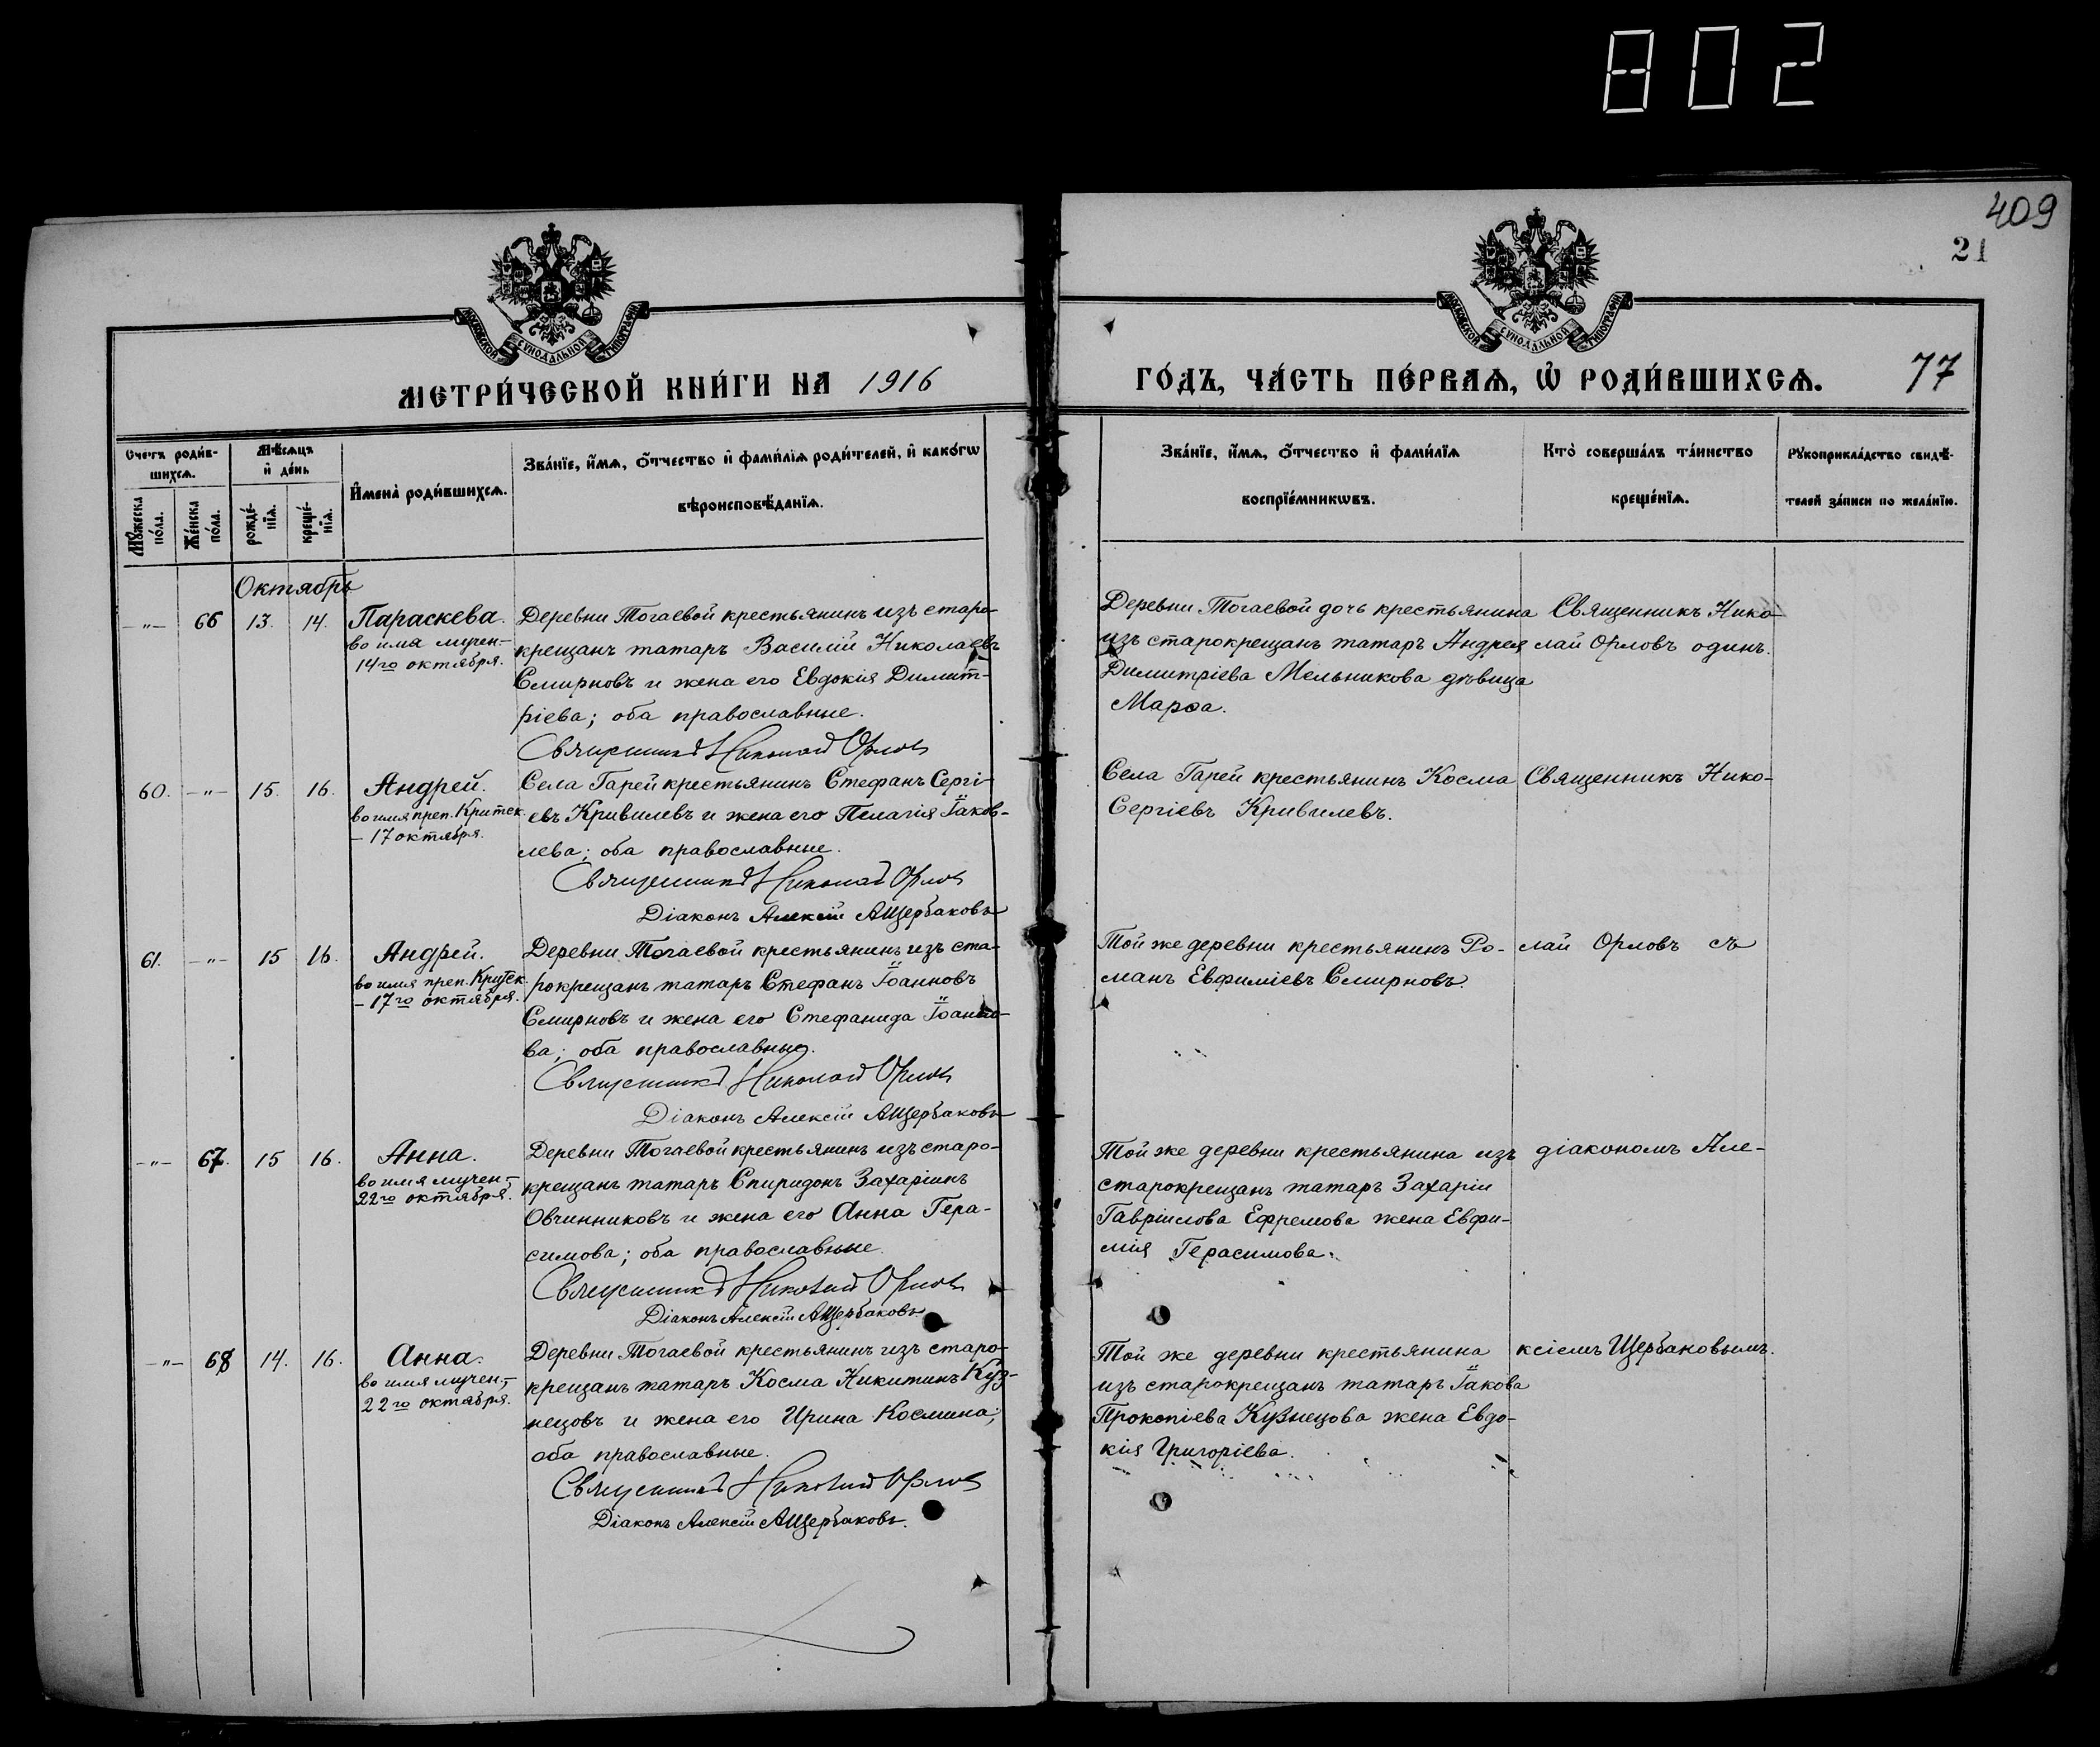 802
409
21
МОСКОВСКОЙ СУНОДАЛЬНОЙ ТИПОГРАФІИ
МОСКОВСКОЙ СУНОДАЛЬНОЙ ТИПОГРАФІИ
МЕТРИ́ЧЕСКОЙ КНИ́ГИ НА 1916
ГО́ДЪ, ЧА́СТЬ ПЕ́РВАѦ, Ѡ҆ РОДИ́ВШИХСѦ.
77
Счетъ роди́в-
шихсѧ.
Мꙋ́жеска по́ла.
Же́нска по́ла.
Мѣ́сѧцъ и҆ де́нь
рожде́-нїѧ.
креще́-нїѧ.
И҆мена̀ роди́вшихсѧ.
Зва́нїе, и҆́мѧ, ѻ҆́тчество и҆ фами́лїѧ роди́телей, и҆ како́гѡ
вѣроисповѣ́данїѧ.
Зва́нїе, и҆́мѧ, ѻ҆́тчество и҆ фами́лїѧ
воспрїе́мникѡвъ.
Кто̀ соверша́лъ та́инство
креще́нїѧ.
Рꙋкоприкла́дство свидѣ́-
телей за́писи по жела́нїю.
Октябрь
-"- 66 13. 14. Параскева.
во имя мучен.-
14го октября.
Деревни Тогаевой крестьянинъ изъ старо-
крещанъ татаръ Василій Николаевъ
Смирновъ и жена его Евдокія Димит-
ріева; оба православные.
Священникъ Николай Орловъ
Деревни Тогаевой дочь крестьянина
изъ старокрещанъ татаръ Андрея
Димитріева Мельникова дѣвица
Марѳа.
Священникъ Нико-
лай Орловъ одинъ.
60. -"- 15. 16. Андрей.
во имя преп. Критск.
- 17 октября.
Села Гарей крестьянинъ Стефанъ Сергі-
евъ Кривилевъ и жена его Пелагія Іаков-
лева; оба православные.
Священникъ Николай Орловъ
Діаконъ Алексій АЩербаковъ
Села Гарей крестьянинъ Косма
Сергіевъ Кривилевъ.
Священникъ Нико-
61. -"- 15 16. Андрей.
во имя преп. Критск.
- 17го октября.
Деревни Тогаевой крестьянинъ изъ ста-
рокрещанъ татаръ Стефанъ Іоанновъ
Смирновъ и жена его Стефанида Іоанно-
ва; оба православные.
Священникъ Николай Орловъ
Діаконъ Алексій АЩербаковъ
Той же деревни крестьянинъ Ро-
манъ Евфиміевъ Смирновъ.
лай Орловъ съ
-"- 67. 15 16. Анна.
во имя мучен.-
22го октября.
Деревни Тогаевой крестьянинъ изъ старо-
крещанъ татаръ Спиридонъ Захаріинъ
Овчинниковъ и жена его Анна Гера-
симова; оба православные.
Священникъ Николай Орловъ
Діаконъ Алексій АЩербаковъ
Той же деревни крестьянина изъ
старокрещанъ татаръ Захаріи
Гавріилова Ефремова жена Евфи-
мія Герасимова.
діакономъ Але-
-"- 68 14. 16. Анна.
во имя мучен.-
22го октября.
Деревни Тогаевой крестьянинъ изъ старо-
крещанъ татаръ Косма Никитинъ Куз-
нецовъ и жена его Ирина Космина;
оба православные.
Священникъ Николай Орловъ
Діаконъ Алексій АЩербаковъ.
Той же деревни крестьянина
изъ старокрещанъ татаръ Іакова
Прокопіева Кузнецова жена Евдо-
кія Григоріева.
ксіемъ Щербаковымъ.